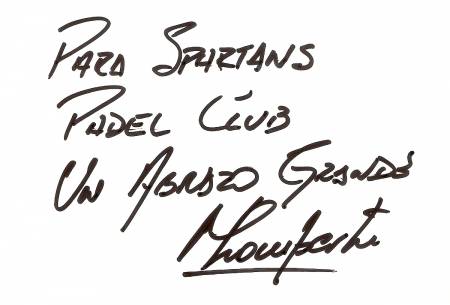 Para Spartans
Padel Club
Un Abrazo Grande